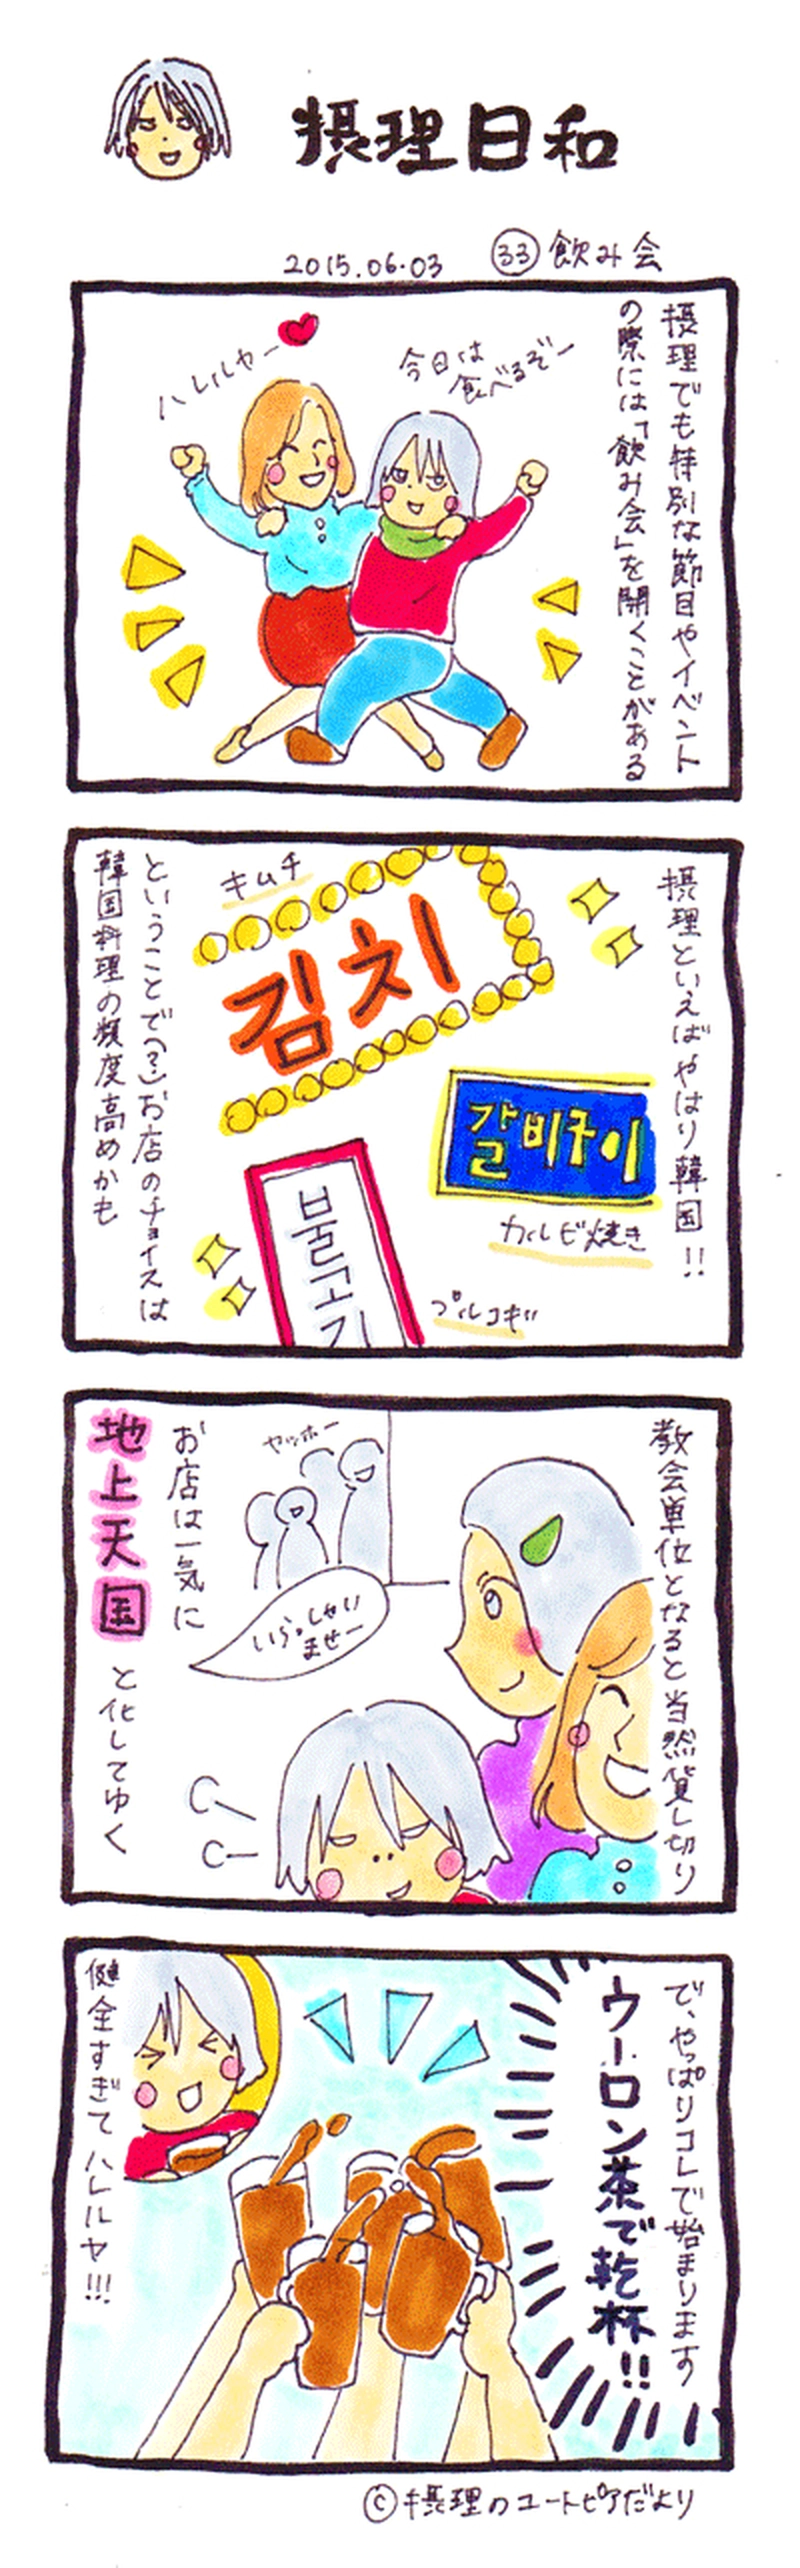 摂理日和
2015.06.03
㉝飲み会
摂理でも特別な節目やイベント
の際には「飲み会」を開くことがある
今日は
食べるぞー
ハレルヤー
摂理といえばやはり韓国!!
キムチ
김치
갈비구이
カルビ焼き
불고기
プルコギ
ということで(?)お店のチョイスは
韓国料理の頻度高めかも
教会単位となると当然貸し切り
ヤッホー
いらっしゃい
ませー
お店は一気に
地上天国
と化してゆく
で、やっぱりコレで始まります
ウーロン茶で乾杯!!
健全すぎてハレルヤ!!!
©摂理のユートピアだより